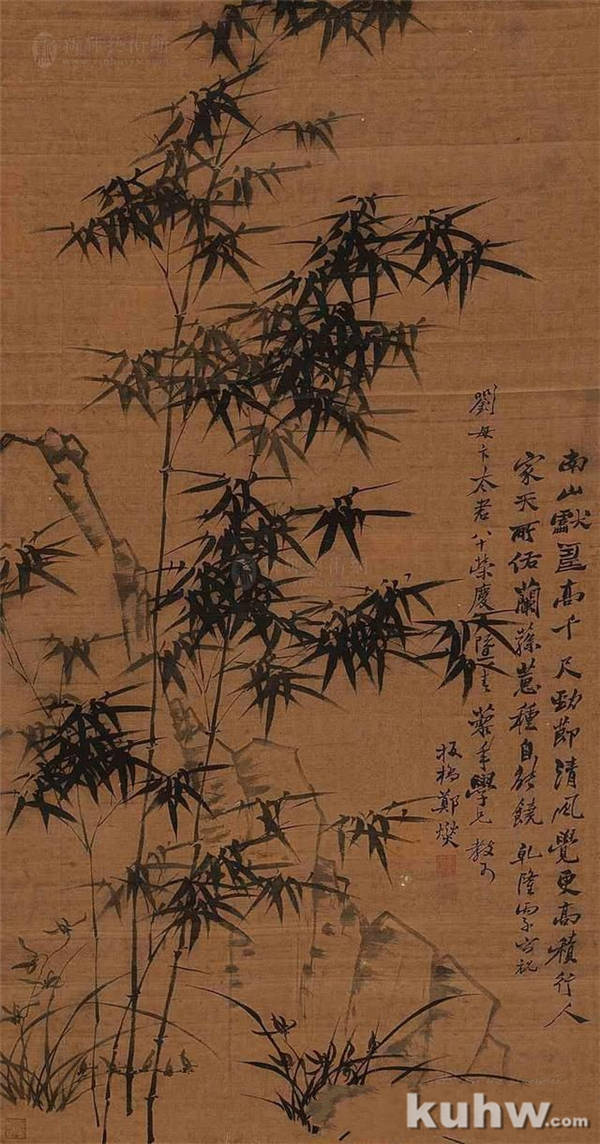 南山獻壽高千尺勁節清風覺更高積行人
家天所佑蘭蓀蕙種自能饒 乾隆丙子 祝
劉母卞太君八十榮慶 年學兄教
板橋鄭燮
kuhw.com